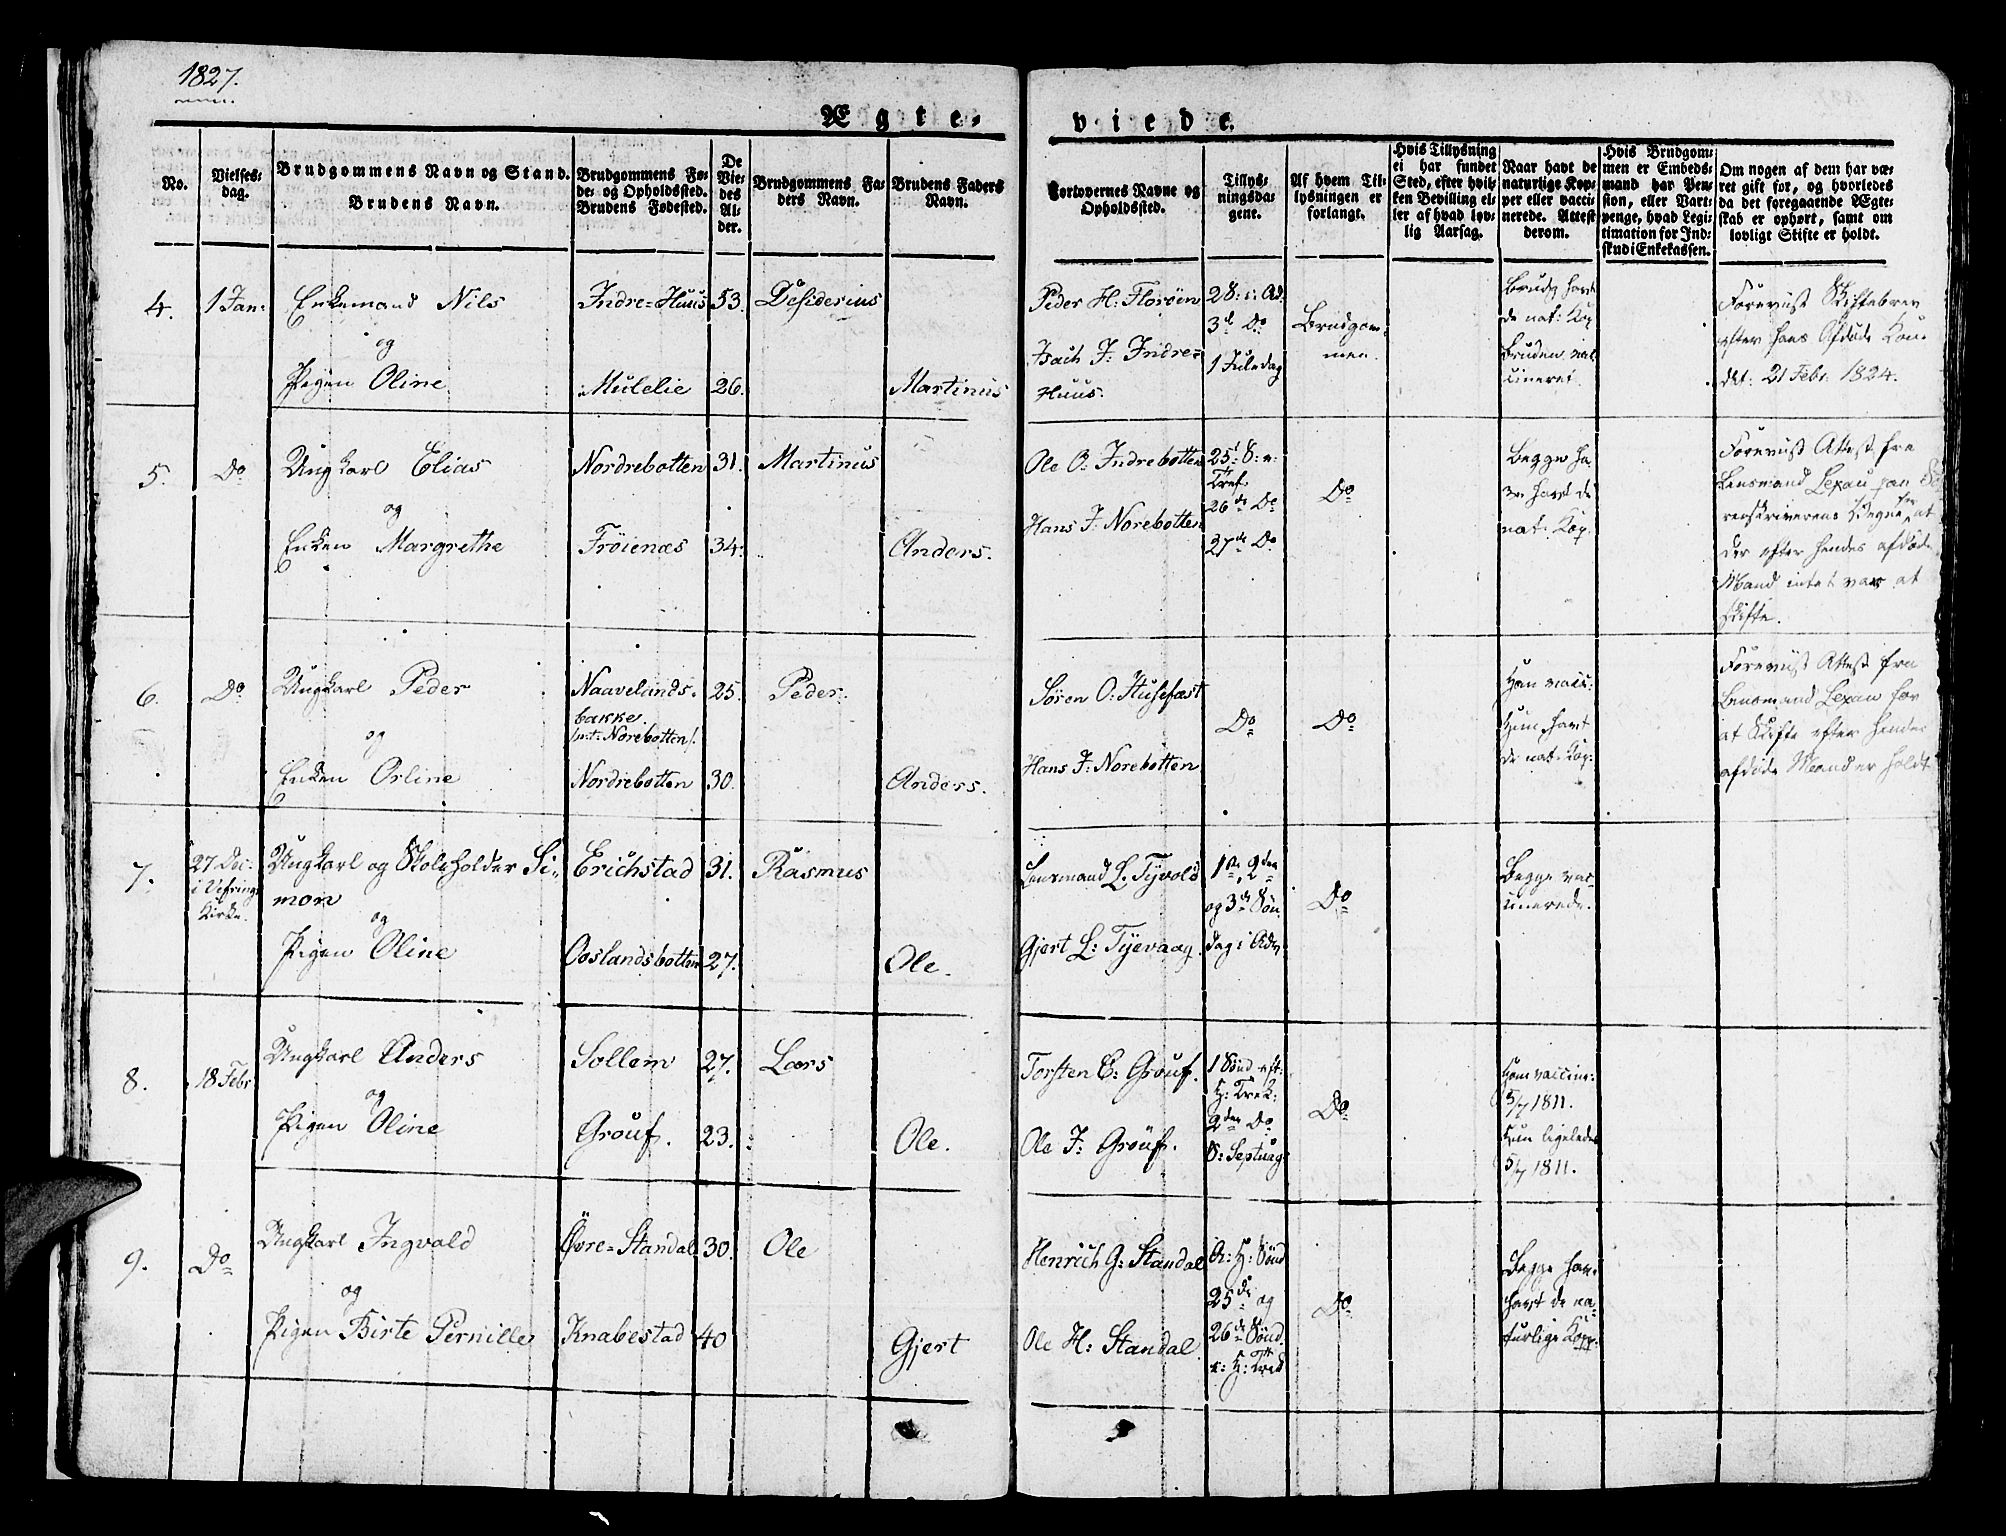 1827.
Ægte-
viede.
No.
Vielses-
dag.
Brudgommens Navn og Stand.
Brudens Navn.
Brudgommens Fø-
de- og Opholdssted.
Brudens Fødested.
De
Vie-
des
Al-
der.
Brudgommens Fa-
ders Navn.
Brudens Faders
Navn.
Forlovernes Navne og
Opholdssted.
Tillys-
ningsda-
gene.
Af hvem Til-
lysningen er
forlangt.
Hvis Tillysning
ei har fundet
Sted, efter hvil-
ken Bevilling el-
ler af hvad lov-
lig Aarsag.
Naar havt de
naturlige Kop-
per eller vacci-
nerede. Attest
derom.
Hvis Brudgom-
men er Embeds-
mand har Pen-
sion, eller Vart-
penge, hvad Legi-
timation for Ind-
skud i Enkekassen.
Om nogen af dem har væ-
ret gift før, og hvorledes
da det foregaaende Ægte-
skab er ophørt, samt om
lovligt Skifte er holdt.
4.
1 Jan:
Enkemand Nils
og
Pigen Oline
Indre=Huus
Mulelie
53.
26.
Desiderius
Martinus
Peder H: Florøen
Isach J: Indre=
Huus.
28: i: Ad.
3de Do
1 Juledag
Brudgom-
men.
Brudg havt
de nat: Kop
Bruden vac
cineret.
Foreviist Skiftebrev
efter hans Afdøde Kone
dat: 21 Febr: 1824.
5.
Do
Ungkarl Elias
og
Enken Margrethe
Nordrebotten
Frøienæs
31.
34.
Martinus
Anders.
Ole O: Indrebotten
Hans J: Norebotten
25: S: e:
Tref.
26de Do
27de Do
Do
Begge ha-
ve havt de
nat: Kop.
Foreviist Attest fra
Lensmand Lexau paa So
renskriverens Vegne for at
der efter hendes afdøde
Mand intet var at
skifte.
6.
Do
Ungkarl Peder
og
Enken Orline
Naavelands-
bakke.
/nt: Norebotten/.
Nordrebotten
25.
30.
Peder.
Anders.
Søren O: Husefæst
Hans J: Norebotten
Do
Do
Han vacc:
Hun havt
de nat: Kop:
Foreviist Attest fra
Lensmand Lexau for
at Skifte efter hendes
afdøde Mand er holdt
7.
27 Dec:
i Vefrings
Kirke.
Ungkarl og Skoleholder Si-
mon
og
Pigen Oline
Erichstad
Ooslandsbotten
31.
27.
Rasmus
Ole.
Lensmand L. Tyvold
Gjert L: Tyevaag.
1ste, 2den
og 3de Søn.
dag i Adv
Do
Begge vac-
cinerede.
8.
18 Febr
Ungkarl Anders
og
Pigen Oline
Sollem
Grouf.
27.
23.
Lars
Ole.
Torsten E: Grouf.
Ole J: Grouf.
1 Sønd eft:
H: Trek:
2den Do
S: Septuag:
Do
Han vaccine:
5/7 1811.
Hun ligeledes
5/7 1811.
9.
Do
Ungkarl Ingvald
og
Pigen Birte Pernille
Øvre=Standal
Knabestad
30.
40
Ole
Gjert
Henrich G: Standal
Ole H: Standal
25de og
26de Sønd
e: H: Tref
Do
Begge har
havt de na-
turlige Kop: